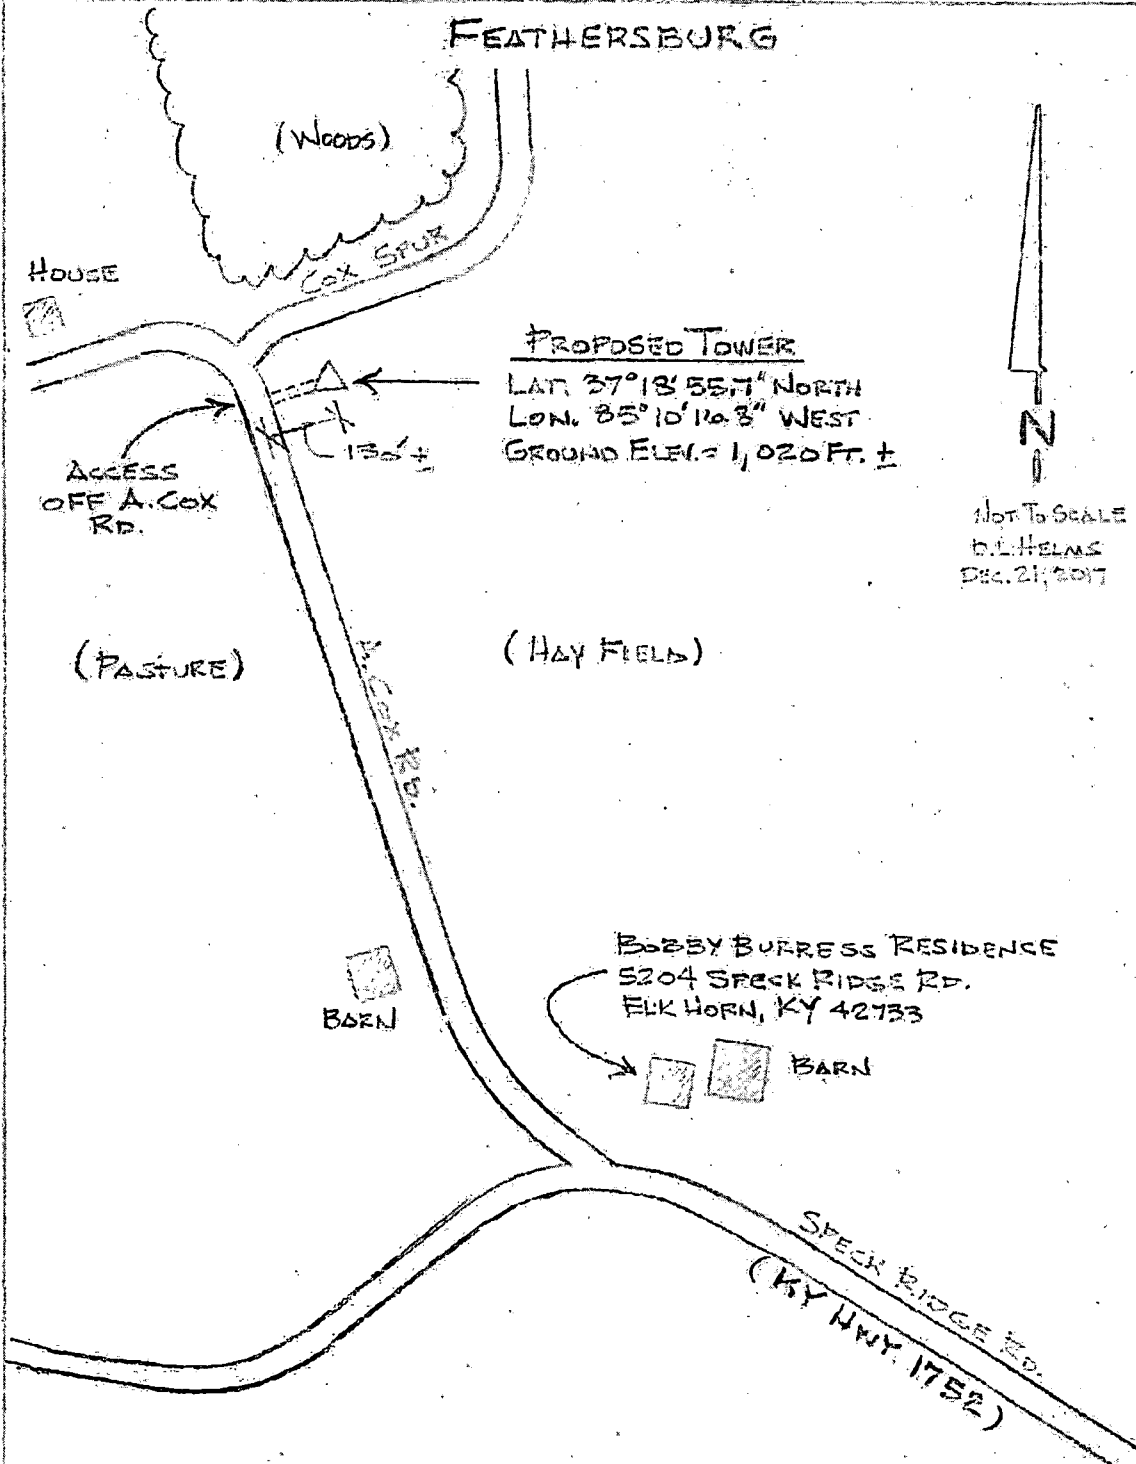 FEATHERSBURG
(WOODS)
COX SPUR
HOUSE
PROPOSED TOWER
LAT. 37°18'55.7" NORTH
LON. 85°10'16.8" WEST
GROUND ELEV. = 1,020 FT. ±
130' ±
ACCESS
OFF A. COX
RD.
N
NOT TO SCALE
D.L. HELMS
DEC. 21, 2017
(PASTURE)
(HAY FIELD)
A. COX RD.
BOBBY BURRESS RESIDENCE
5204 SPECK RIDGE RD.
ELK HORN, KY 42733
BARN
BARN
SPECK RIDGE RD.
(KY HWY. 1752)